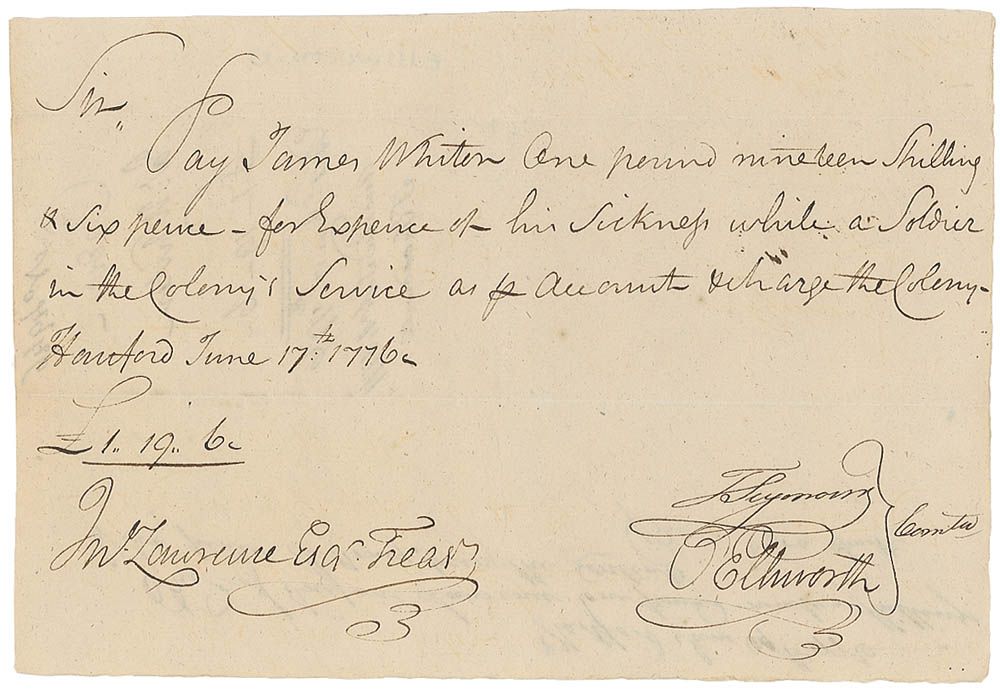 Sir,,
Pay James Whiton One pound nineteen Shilling
& Six pence – for Expence of his Sickness while a Soldier
in the Colony's Service as ⅌ Account & charge the Colony –
Hartford June 17th 1776.
£1.. 19.. 6.
Jno. Lawrence Esqr Treasr
T Seymour
O Ellsworth
Comtee